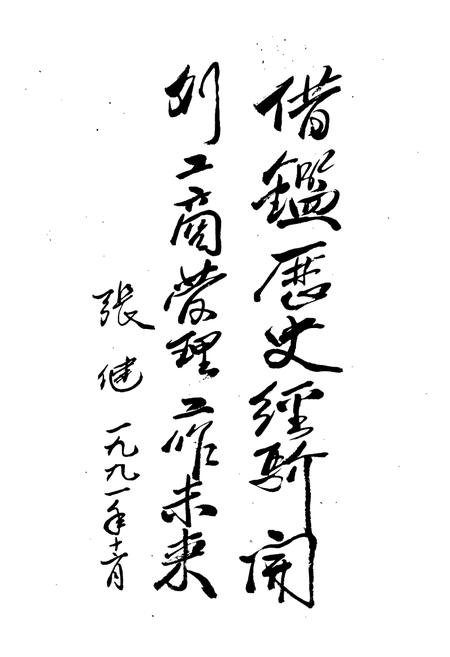 借鑑歷史經驗開
创工商管理工作未来
張健
一九九一年十二月